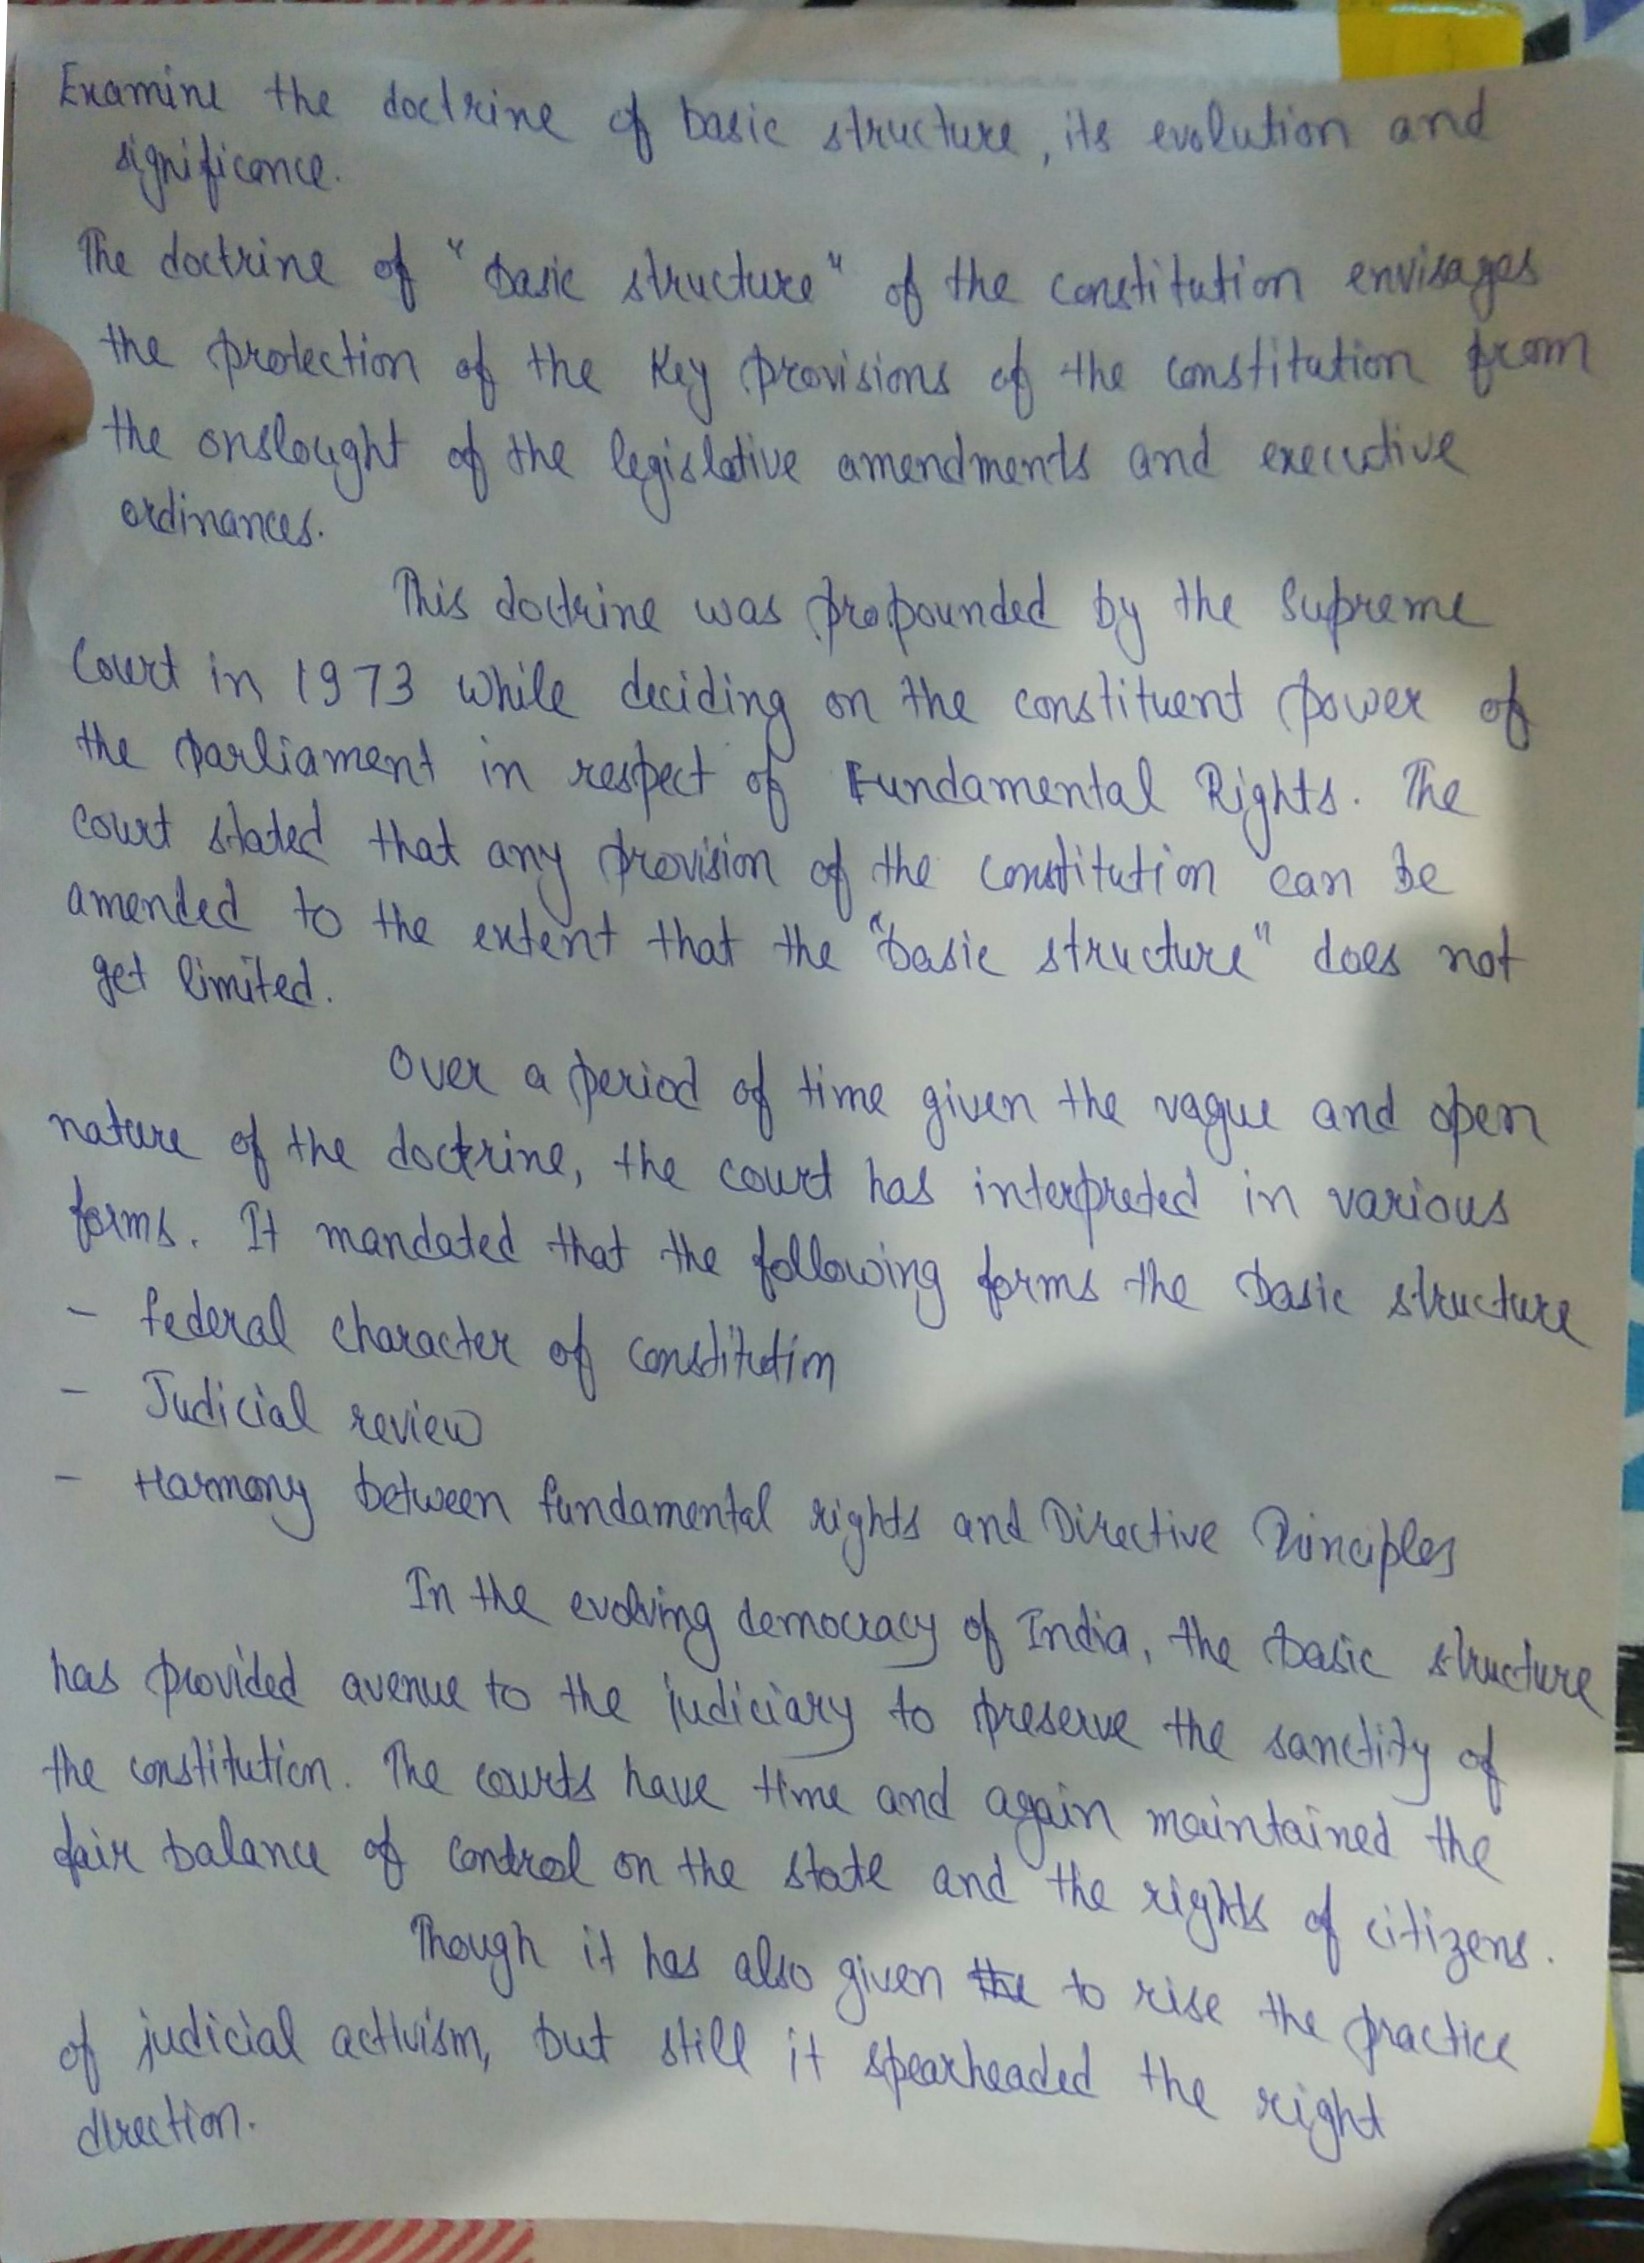 Examine the doctrine of basic structure, its evolution and
significance.
The doctrine of "basic structure" of the constitution envisages
the protection of the key provisions of the constitution from
the onslought of the legislative amendments and executive
ordinances.
This doctrine was propounded by the Supreme
Court in 1973 while deciding on the constituent power of
the parliament in respect of Fundamental Rights. The
court stated that any provision of the constitution can be
amended to the extent that the "basic structure" does not
get limited.
Over a period of time given the vague and open
nature of the doctrine, the court has interpreted in various
forms. It mandated that the following forms the basic structure
- federal character of constitution
- Judicial review
- Harmony between fundamental rights and Directive Principles
In the evolving democracy of India, the basic structure
has provided avenue to the judiciary to preserve the sanctity of
the constitution. The courts have time and again maintained the
fair balance of control on the state and the rights of citizens.
Though it has also given the to rise the practice
of judicial activism, but still it spearheaded the right
direction.